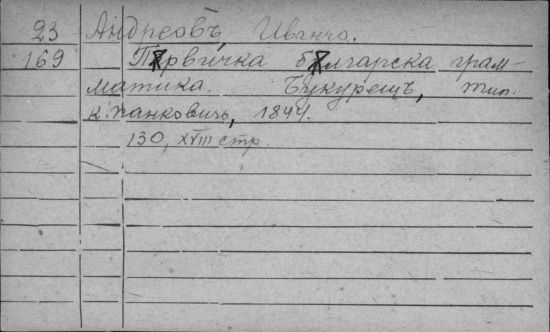 23 Андреовъ, Иванчо.
169 Пѫрвичка бѫлгарска грам-
матика. Букурещъ, тип.
к. Йанковичъ, 1844.
130, XVIII стр.